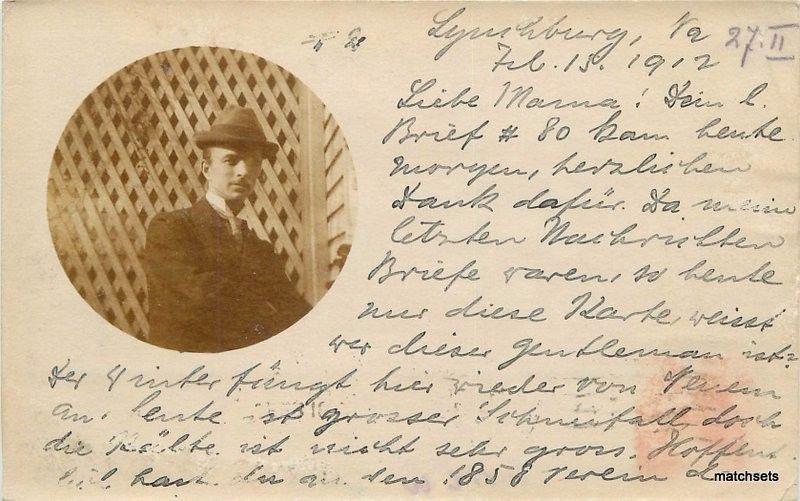 Lynchburg, Va
27.II
Feb. 15. 1912
Liebe Mama! Dein l.
Brief # 80 kam heute
morgen, herzlichen
Dank dafür. Da meine
letzten Nachrichten
Briefe waren, so heute
nur diese Karte, weisst
wer dieser gentleman ist?
Der Winter fängt hier wieder von Neuem
an, heute ist grosser Schneefall, doch
die Kälte ist nicht sehr gross. Hoffent
hast du an den 1858 Verein
matchsets